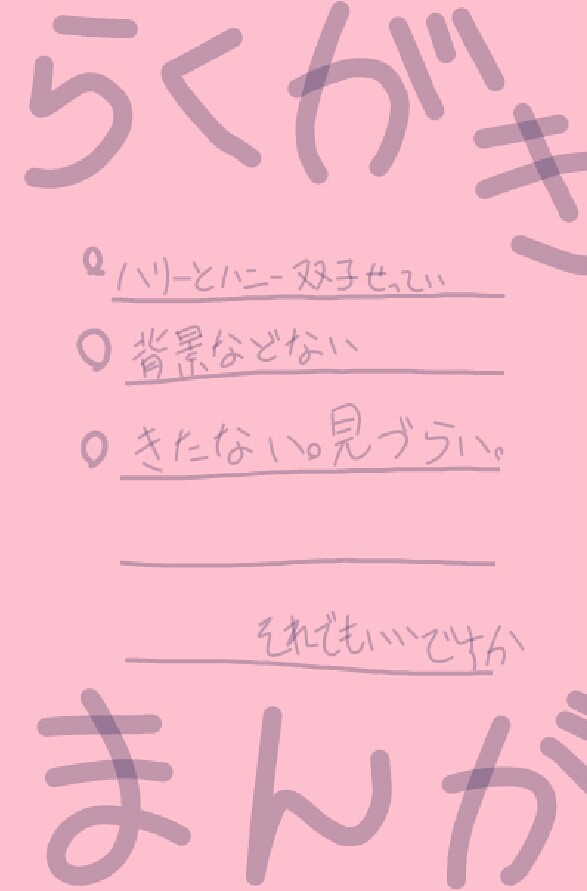 らくがき
ハリーとハニー双子せってい
背景などない
きたない。見づらい。
それでもいいですか
まんが